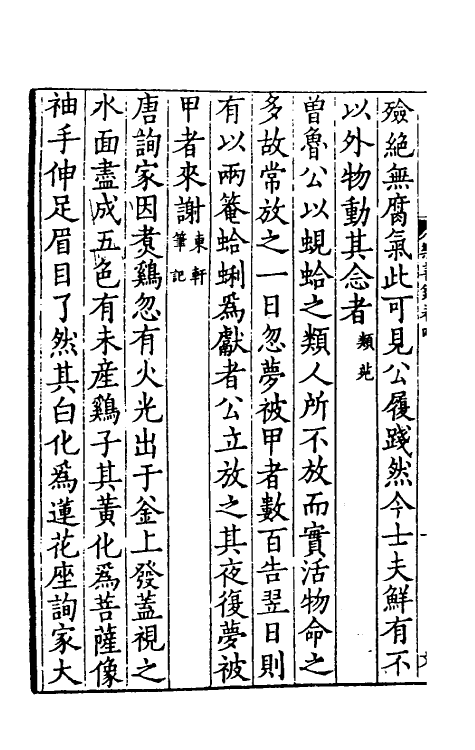 殮絶無腐氣此可見公履踐然今士夫鮮有不
以外物動其念者類苑
曽魯公以蜆蛤之類人所不放而實活物命之
多故常放之一日忽夢被甲者數百告翌日則
有以兩菴蛤蜊爲獻者公立放之其夜復夢被
甲者來謝東軒筆記
唐詢家因煑鷄忽有火光出于釜上發蓋視之
水面盡成五色有未産鷄子其黃化爲菩薩像
袖手伸足眉目了然其白化爲蓮花座詢家大